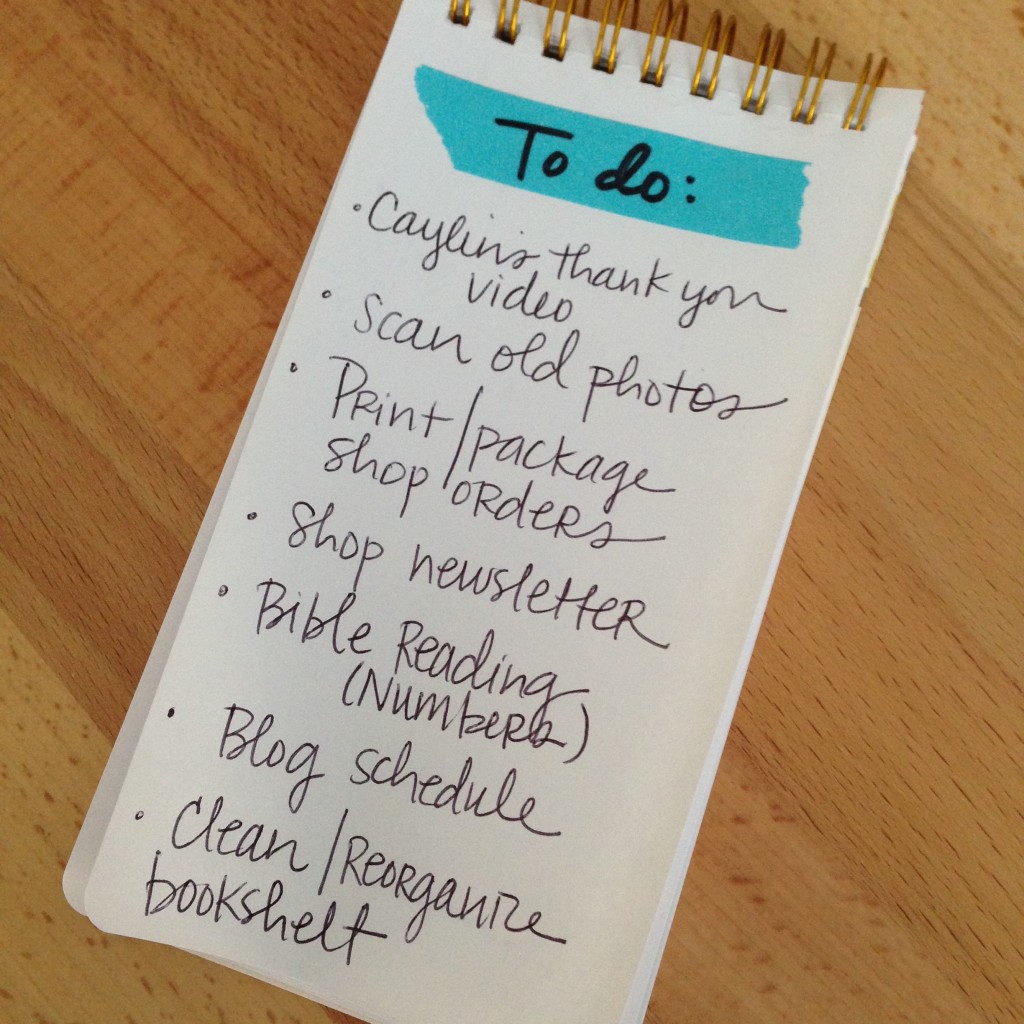 To do:
Caylin's thank you
video
Scan old photos
Print/package
shop orders
Shop newsletter
Bible Reading
(Numbers)
Blog schedule
Clean/Reorganize
bookshelf